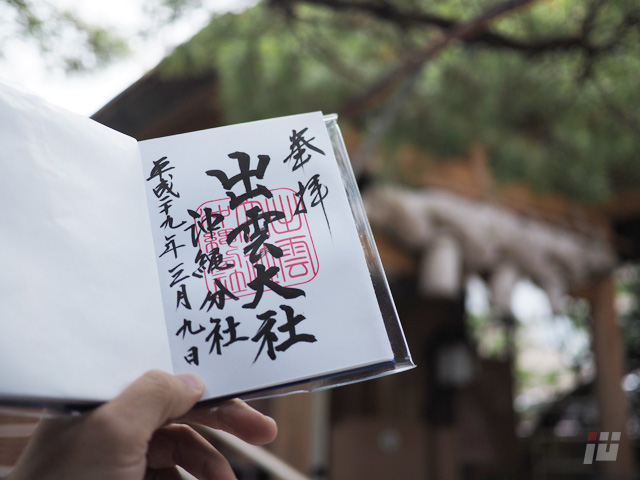 奉拝
出雲大社
沖縄分社
平成二十九年三月九日